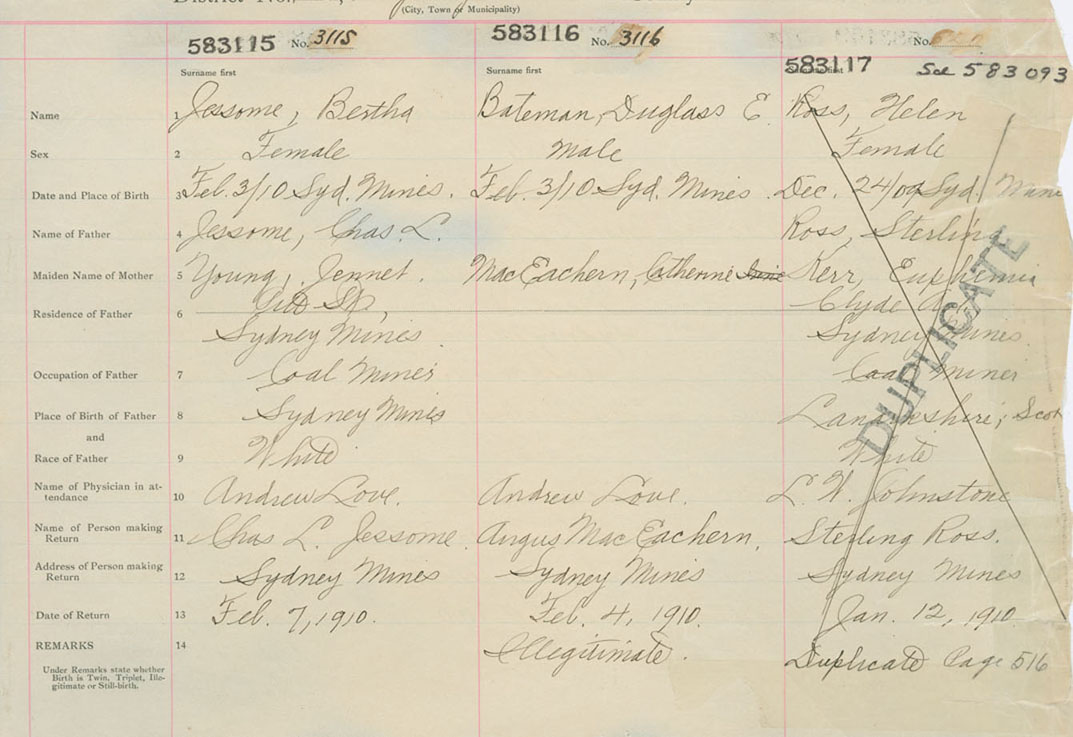 District No.
(City, Town or Municipality)
583115 No. 3115 583116 No. 3116 583117 No. See 583093
Surname first Surname first Surname first
Name 1 Jessome, Bertha Bateman, Duglass E Ross, Helen
Sex 2 Female Male Female
Date and Place of Birth 3 Feb. 3/10 Syd. Mines. Feb. 3/10 Syd. Mines. Dec. 24/09 Syd. Mine
Name of Father 4 Jessome, Chas. L. Ross, Sterling
Maiden Name of Mother 5 Young, Jennet. MacEachern, Catherine Kerr, Euphemia
Residence of Father 6 Sydney Mines. Clyde Sydney Mines.
Occupation of Father 7 Coal Miner Coal Miner
Place of Birth of Father 8 Sydney Mines Lanarkshire, Scot
and
Race of Father 9 White White
Name of Physician in at-
tendance 10 Andrew Love. Andrew Love. L. W. Johnstone
Name of Person making
Return 11 Chas L. Jessome. Angus MacEachern. Sterling Ross.
Address of Person making
Return 12 Sydney Mines Sydney Mines Sydney Mines
Date of Return 13 Feb. 7, 1910. Feb. 4, 1910. Jan. 12, 1910
REMARKS 14 Illegitimate. Duplicate Page 516
Under Remarks state whether
Birth is Twin, Triplet, Ille-
gitimate or Still-birth.
DUPLICATE